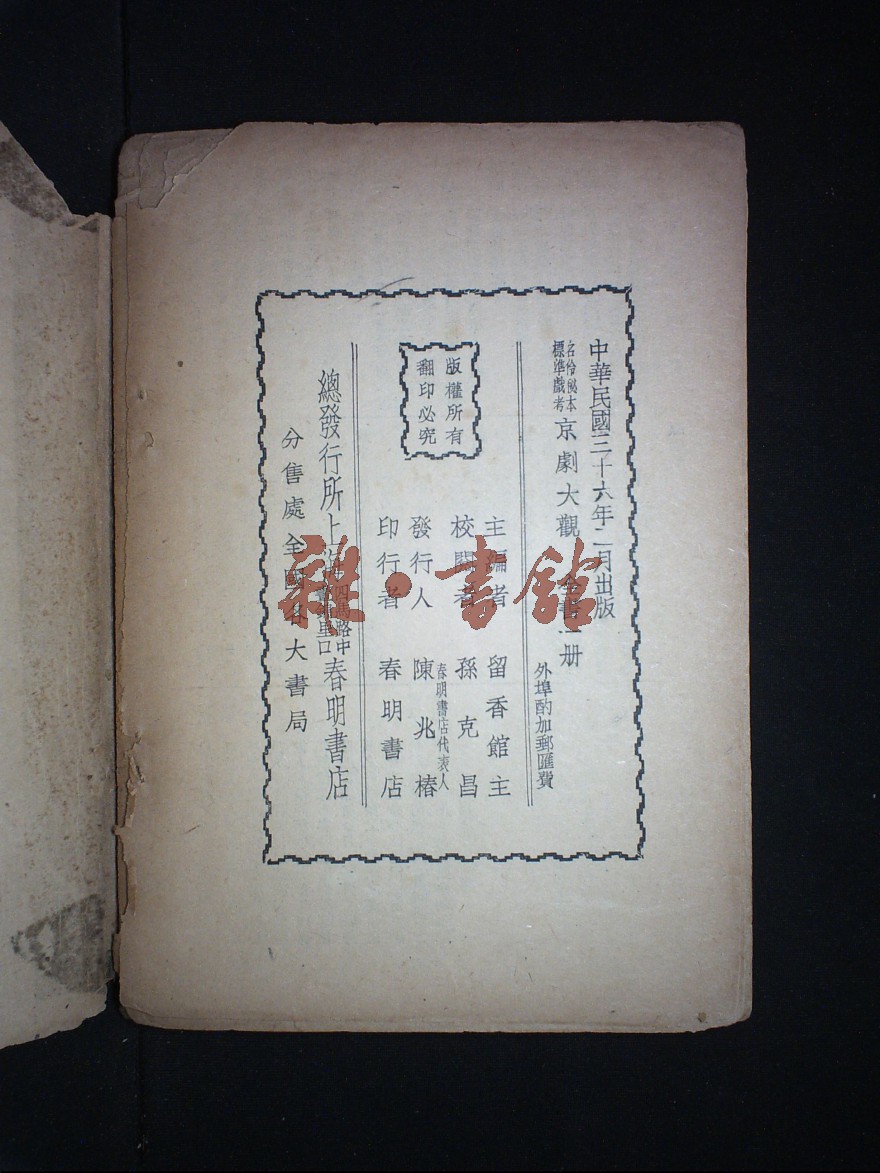 中華民國三十六年二月出版
名伶祕本
標準戲考
京劇大觀 全書一册
外埠酌加郵匯費
版權所有
翻印必究
主編者 留香館主
校閱者 孫克昌
發行人 春明書店代表人 陳兆椿
印行者 春明書店
總發行所上海四馬路中里口春明書店
分售處全國各大書局
雜·書館